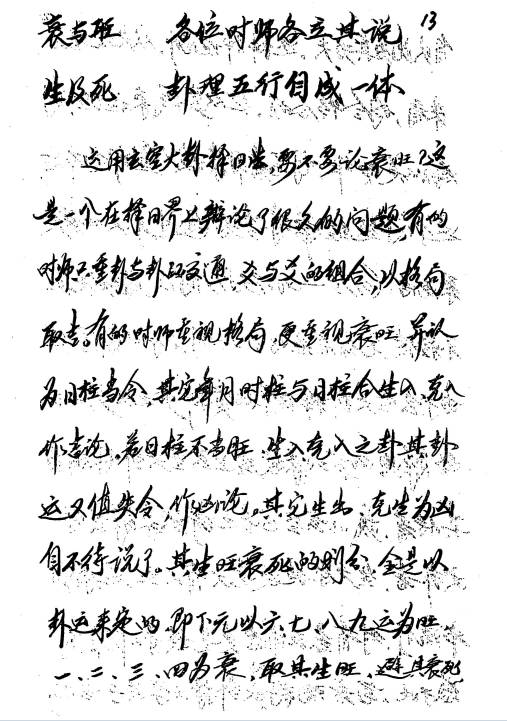 13
衰与旺 各位时师各立其说
生及死 卦理五行自成一体
运用玄空大卦择日法,要不要论衰旺?这
是一个在择日界上辩论了很久的问题,有的
时师只重卦与卦的交通,爻与爻的组合,以格局
取吉。有的时师重视格局,更重视衰旺,并认
为日柱当令,其它年月时柱与日柱合生入、克入
作吉论,若日柱不当旺,生入克入之卦其卦
运又值失令,作凶论。其它生出、克生为凶
自不待说了。其生旺衰死的划分,全是以
卦运来定的,即下元以六、七、八、九运为旺,
一、二、三、四为衰,取其生旺,避其衰死